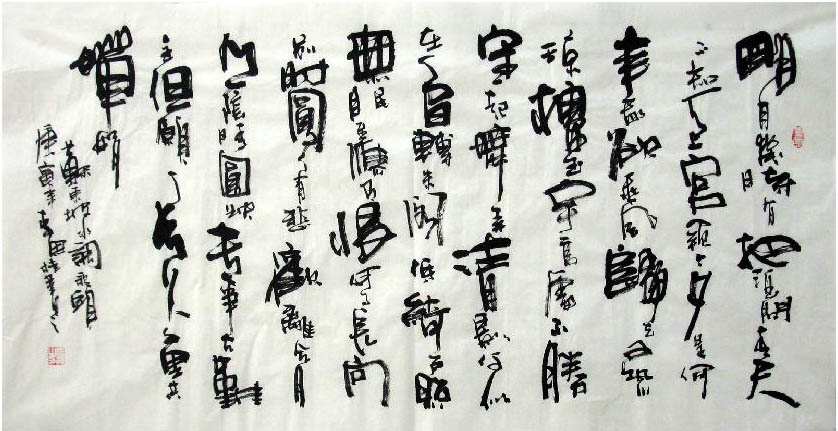 明月幾時有把酒問青天
不知天上宮闕今夕是何
年我欲乘風歸去又恐
瓊樓玉宇高處不勝
寒起舞弄清影何似
在人間轉朱閣低綺戶照
無眠不應有恨何事長向
別時圓人有悲歡離合月
有陰晴圓缺此事古難
全但願人長久千里共
嬋娟
蘇東坡水調歌頭
庚寅年